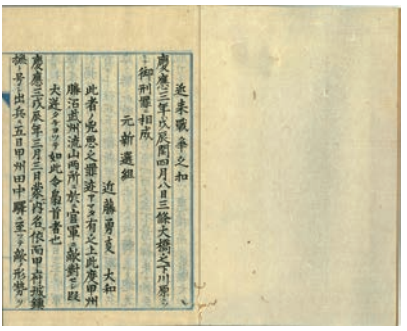 近来戦争之扣
慶應三年戊辰閏四月八日三條大橋之下川原ニ
御刑罪ニ相成
元新選組
近藤勇事 大和
此者ノ兇悪之罪迹アマタ有之上此度甲州
勝沼武州流山両所ニ於テ官軍ニ敵對セシ段
大逆タルヨツテ如此令梟首者也
慶應三戊辰年三月三日蒙内名依而甲府城鎮
撫ト号シ出兵ス五日甲州田中驛ニ至ツテ敵ノ形勢ヲ